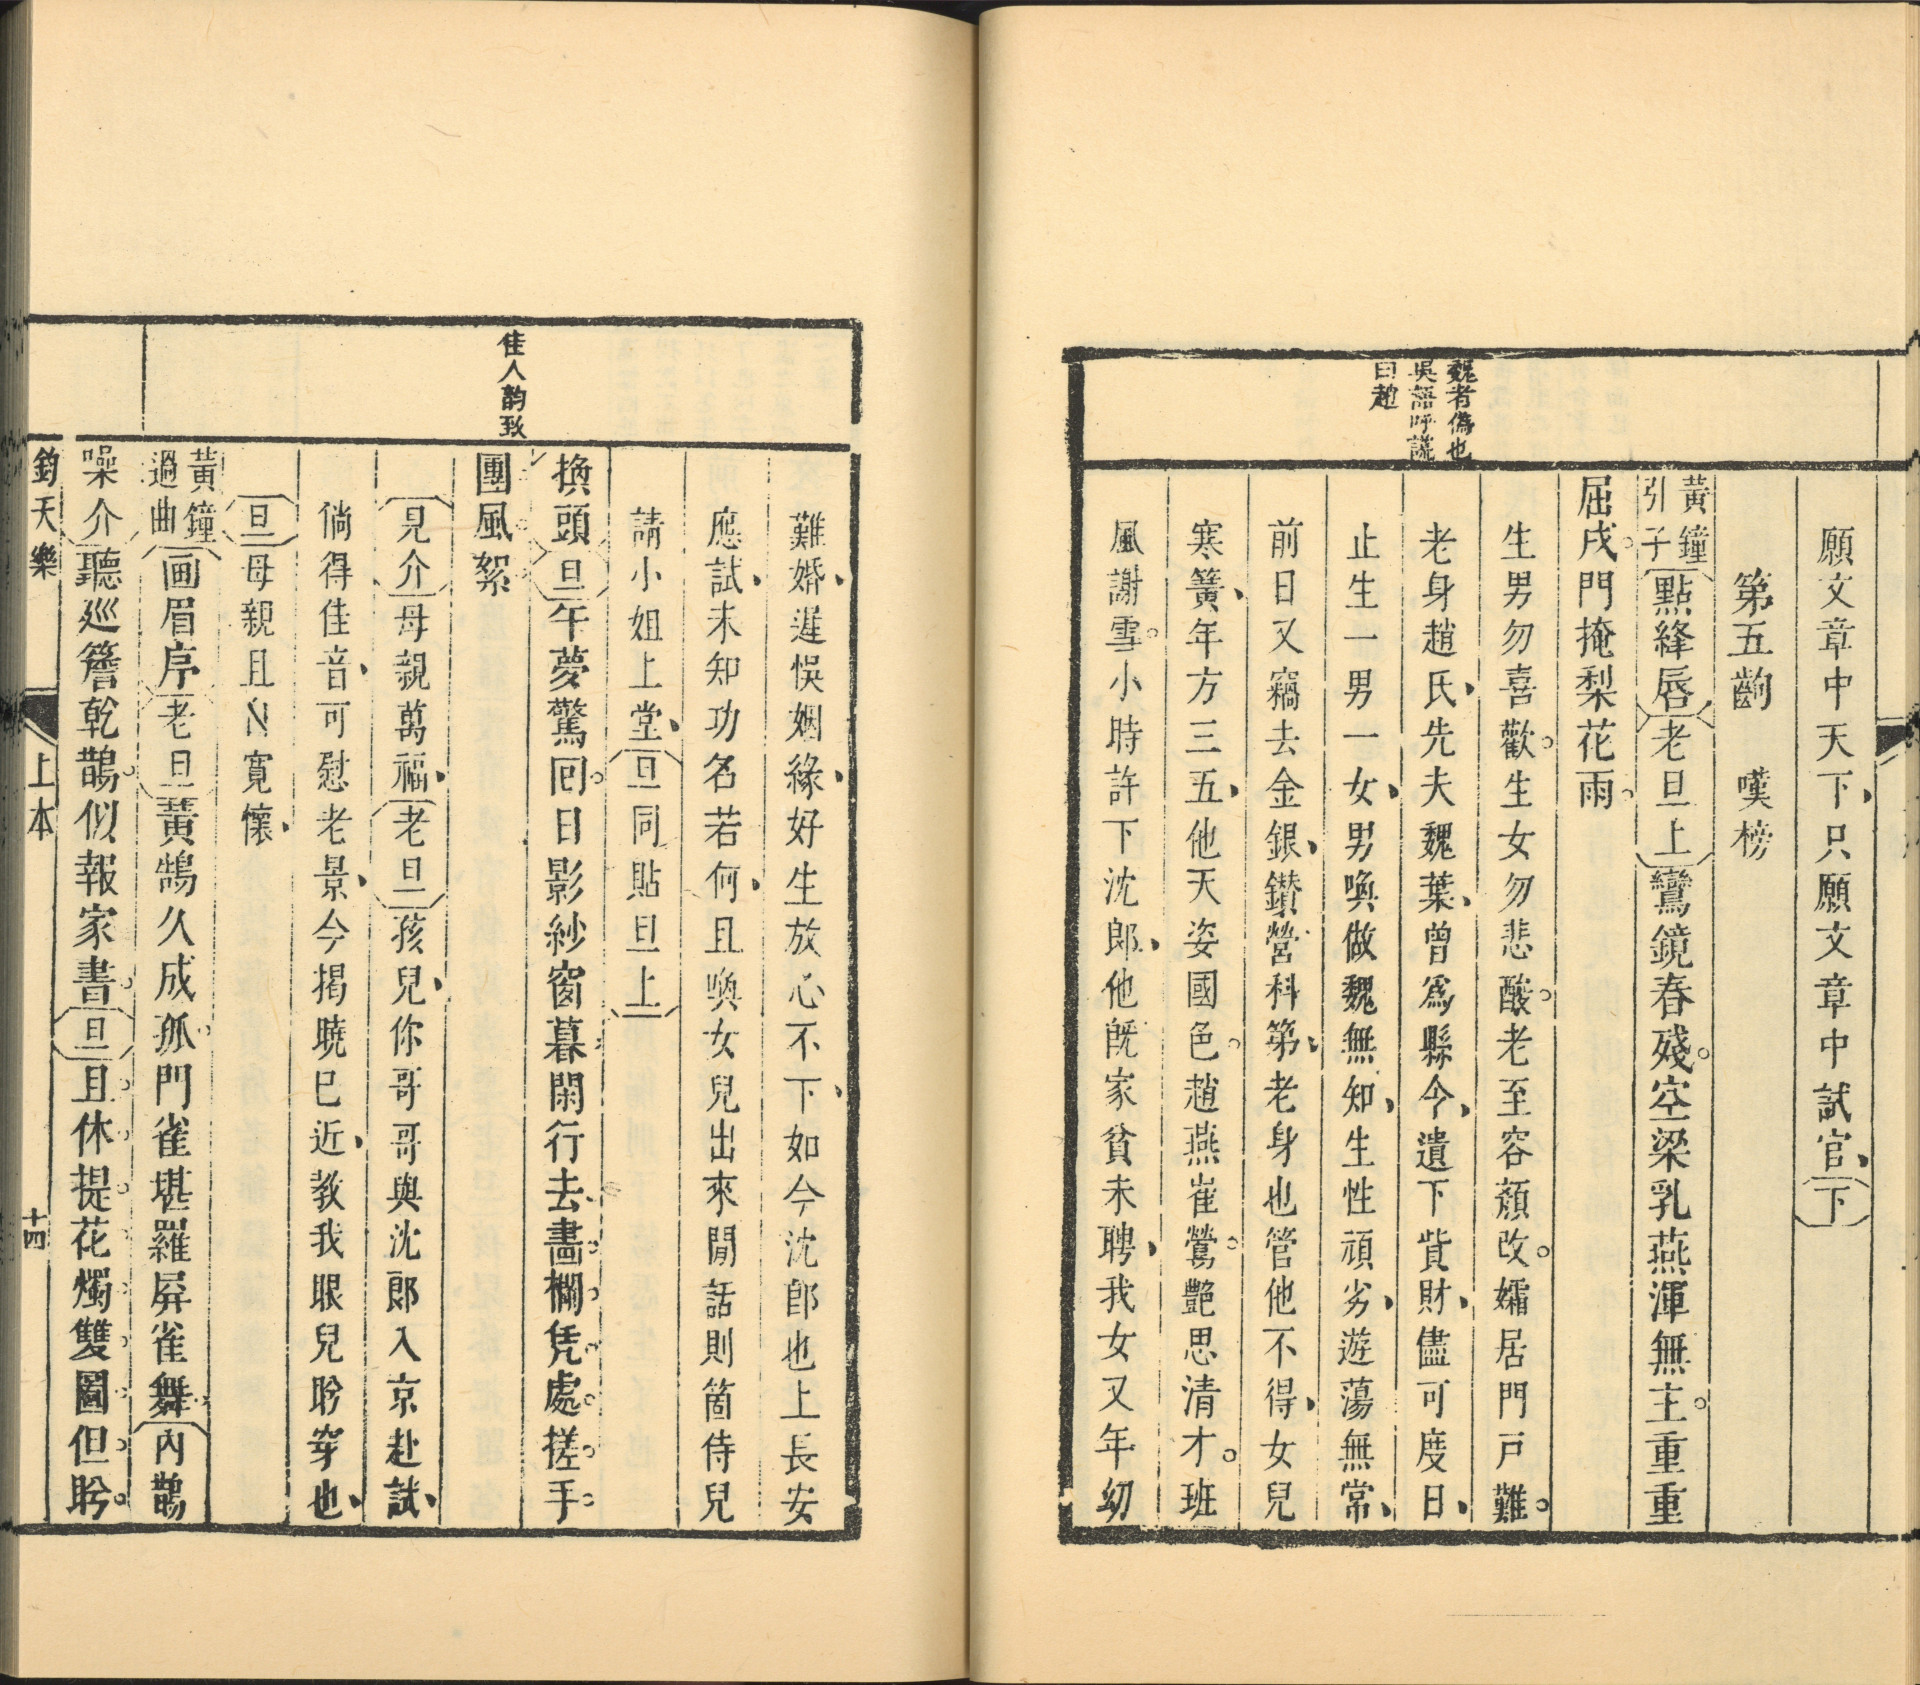 願文章中天下只願文章中試官下
第五齣　嘆榜
黃鐘引子點絳唇老旦上鸞鏡春殘空梁乳燕渾無主重重
屈戌門掩梨花雨
生男勿喜歡生女勿悲酸老至容顏改孀居門戸難
老身趙氏先夫魏葉曾爲縣令遺下貲財儘可度日
止生一男一女男喚做魏無知生性頑劣遊蕩無常
前日又竊去金銀鑚營科第老身也管他不得女兒
寒簧年方三五他天姿國色趙燕崔鶯艷思清才班
風謝雪小時許下沈郎他旣家貧未聘我女又年幼
魏者僞也
吳語呼謊
曰趙
難婚遲悞姻緣好生放心不下如今沈郎也上長安
應試未知功名若何且喚女兒出來閒話則箇侍兒
請小姐上堂旦同貼旦上
換頭旦午夢驚回日影紗窗暮閑行去畵欄凭處搓手
團風絮
見介母親萬福老旦孩兒你哥哥與沈郎入京赴試
倘得佳音可慰老景今揭曉已近教我眼兒盻穿也
旦母親且寬懷
黃鐘過曲画眉序老旦黃鵠久成孤門雀堪羅屛雀舞內鵲
噪介聽巡簷乾鵲似報家書旦且休提花燭雙圖但盻
佳人韵致
鈞天樂
上本
十四